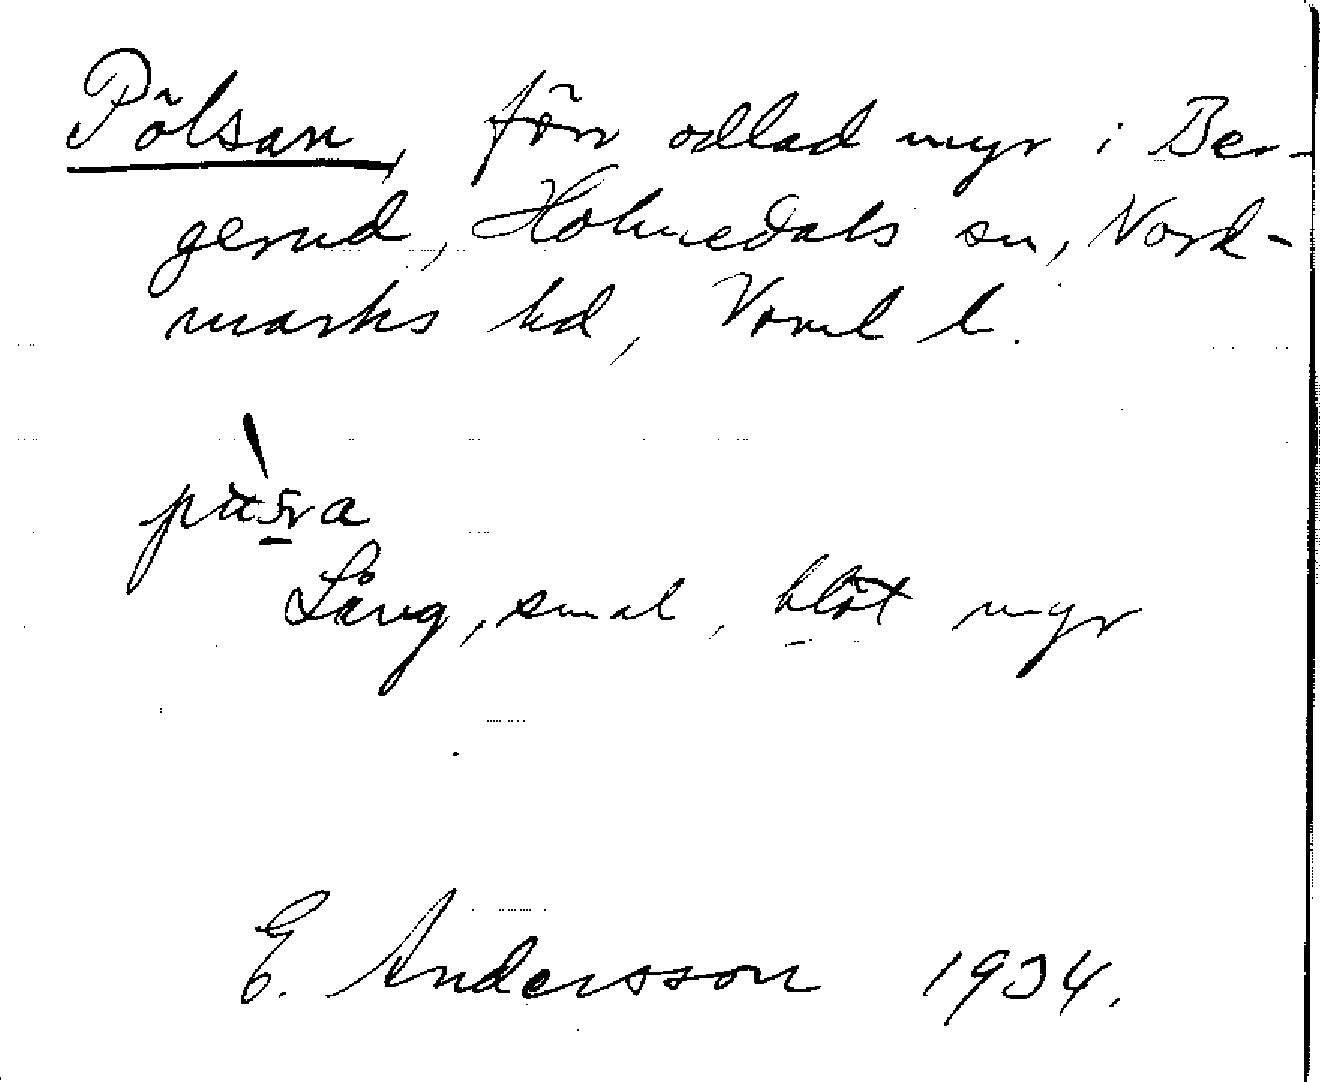 Pölsan, förr odlad myr i Ber-
gerud, Holmedals sn, Nord-
marks hd, Vorml l.
Lång, smal, blöt myr
E. Andersson 1934.